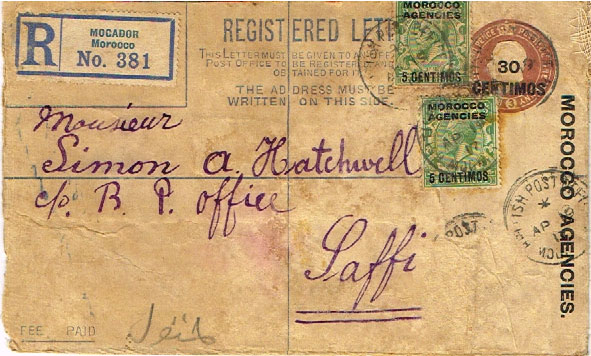 R
MOGADOR
Morocco
No. 381
REGISTERED LETTE
THIS LETTER MUST BE GIVEN TO AN OFF
POST OFFICE TO BE REGISTERED, A
OBTAINED FOR IT.
THE ADDRESS MUST BE
WRITTEN ON THIS SIDE.
MOROCCO
AGENCIES
5 CENTIMOS
30
CENTIMOS
MOROCCO
AGENCIES
5 CENTIMOS
MOROCCO AGENCIES.
Monsieur
Simon A. Hatchwell
c/o. B. P. Office
Saffi
POST
FEE PAID